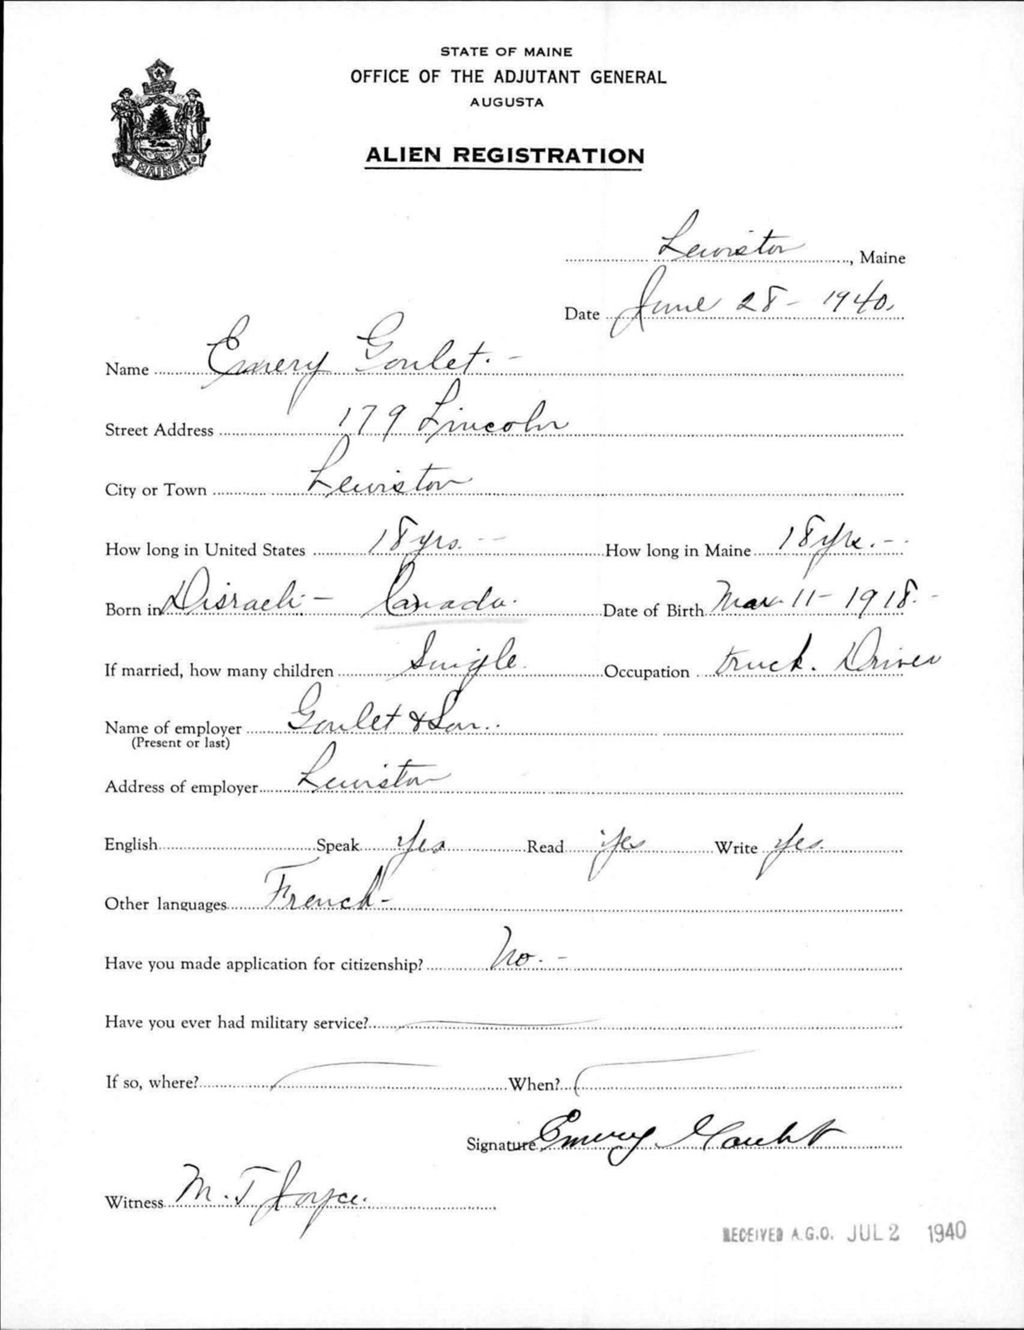 STATE OF MAINE
OFFICE OF THE ADJUTANT GENERAL
AUGUSTA
ALIEN REGISTRATION
MAINE
Lewiston, Maine
Date June 28 - 1940.
Name Emery Goulet. -
Street Address 179 Lincoln
City or Town Lewiston
How long in United States 18 yrs. - How long in Maine 18 yrs. -
Born in Disraeli - Canada. Date of Birth Mar 11 - 1918. -
If married, how many children Single. Occupation truck. Driver
Name of employer Goulet & Son.
(Present or last)
Address of employer Lewiston
English Speak Yes Read Yes Write Yes
Other languages French -
Have you made application for citizenship? No. -
Have you ever had military service? —
If so, where? — When? —
Signature Emery Goulet
Witness M. T Joyce.
RECEIVED A.G.O. JUL 2 1940